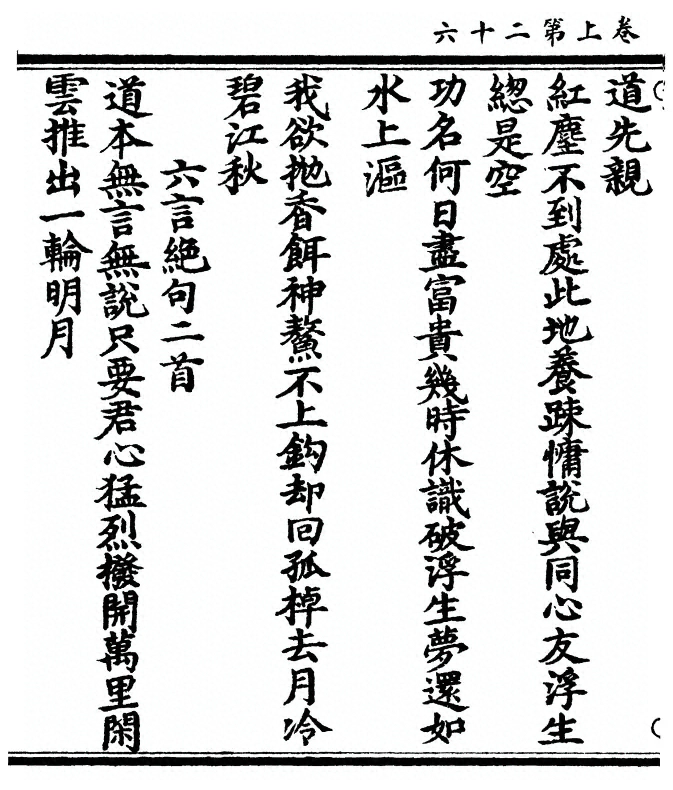 卷上第二十六
道先親
紅塵不到處此地養踈慵說與同心友浮生
緫是空
功名何日盡富貴幾時休識破浮生夢還如
水上漚
我欲抛香餌神鰲不上鈎却回孤棹去月冷
碧江秋
六言絕句二首
道本無言無說只要君心猛烈撥開萬里閑
雲推出一輪明月